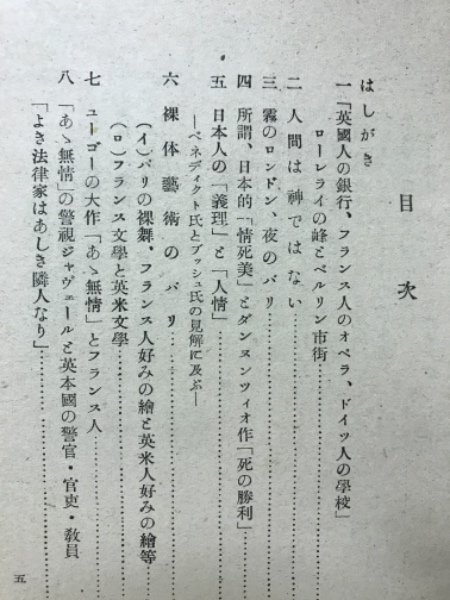 目次
はしがき
一「英國人の銀行、フランス人のオペラ、ドイツ人の學校」
ローレライの峰とベルリン市街
二 人間は神ではない
三 霧のロンドン、夜のパリ
四 所謂、日本的「情死美」とダンヌンツィオ作「死の勝利」
五 日本人の「義理」と「人情」
―ベネディクト氏とブッシュ氏の見解に及ぶ―
六 裸体藝術のパリ
(イ)パリの裸舞、フランス人好みの繪と英米人好みの繪等
(ロ)フランス文學と英米文學
七 ユーゴーの大作「あゝ無情」とフランス人
八 「あゝ無情」の警視ジャヴェールと英本國の警官・官吏・敎員
「よき法律家はあしき隣人なり」
五